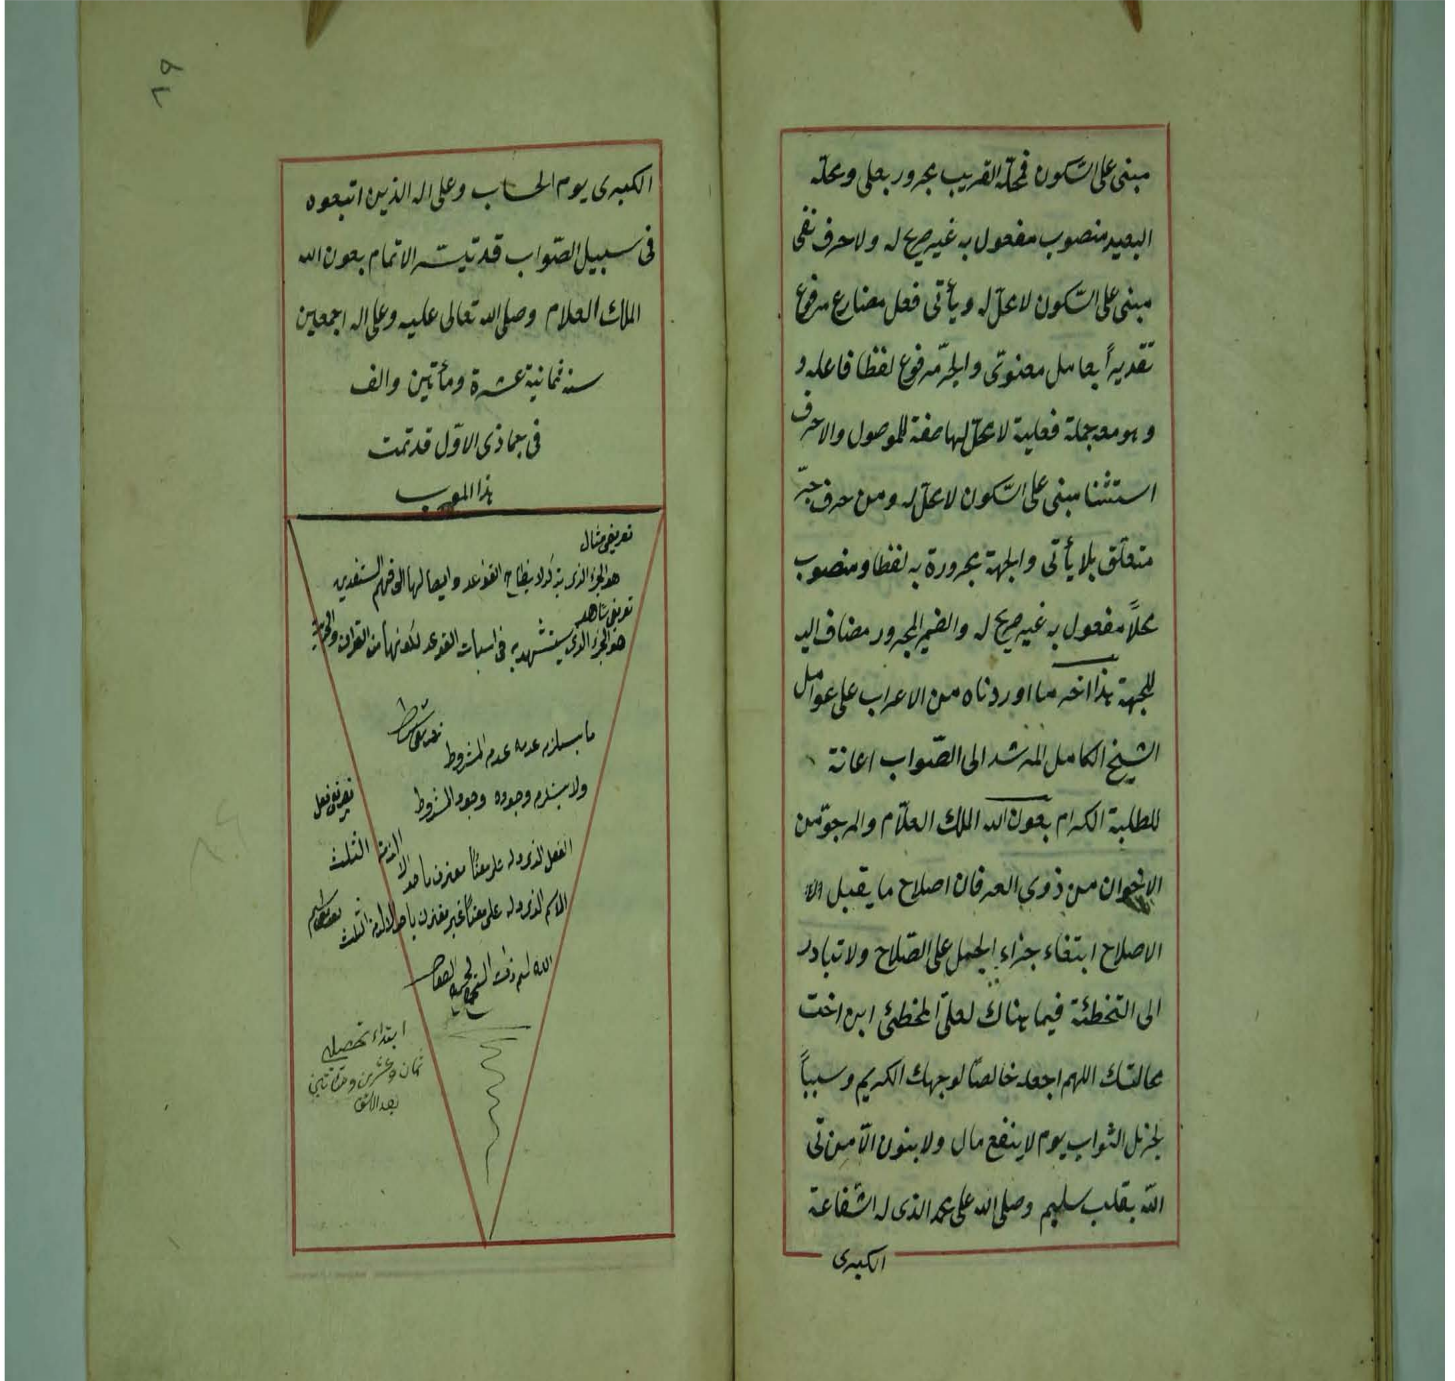 مبنى على السكون فمحله القريب مجرور بعلى ومحله
البعيد منصوب مفعول به غير صريح له ولا حرف نفى
مبنى على السكون لا محل له ويأتى فعل مضارع مرفوع
تقديراً بعامل معنوى والجر مرفوع لفظا فاعله و
وهو معه جملة فعلية لا محل لها صفة للموصول والا حرف
استثنا مبنى على السكون لا محل له ومن حرف جر
متعلق بلا يأتى والجهة مجرورة به لفظا ومنصوب
محلاً مفعول به غير صريح له والضمير المجرور مضاف اليه
للجهة هذا اخر ما اوردناه من الاعراب على عوامل
الشيخ الكامل المرشد الى الصّواب اعانة
للطلبة الكرام بعون الله الملك العلّام والمرجوّ من
الاخوان من ذوي العرفان اصلاح ما يقبل
الاصلاح ابتغاء جزاء الجمل على الصّلاح ولا تبادر
الى التخطئة فيما هناك لعلّ المخطئ ابن اخت
خالتك اللهم اجعله خالصًا لوجهك الكريم وسبباً
لجزيل الثواب يوم لا ينفع مال ولا بنون الّا من اتى
الله بقلب سليم وصلى الله على محمد الذى له الشفاعة
الكبرى
٦٩
الكبرى يوم الحساب وعلى اله الذين اتبعوه
فى سبيل الصّواب قد تيسر الاتمام بعون الله
الملك العلام وصلى الله تعالى عليه وعلى اله اجمعين
سنه ثمانية عشرة ومأتين والف
فى جماذى الاوّل قد تمت
هذا المعرب
تعريف مثال
هو الجزء الذى يذكر لايضاح القواعد وايصالها الى فهم المستفدين
تعريف شاهد
هو الجزء الذى يستشهد به فى اسبات القوعد لكونها من القران
تعريف شرط
ما يستلزم عدمه عدم المشروط
ولا يستلزم وجوده وجود المشروط
تعريف فعل
الفعل الذى دله على معنًا مقترن باحد الازمنة الثلث
تعريف اسم
الاسم الذى دله على معنًا غير مقترن باحد الازمنة الثلث
الله اسم ذات
ابتداء تحصيله
ثمان وعشرين ومأتين
بعد الالف